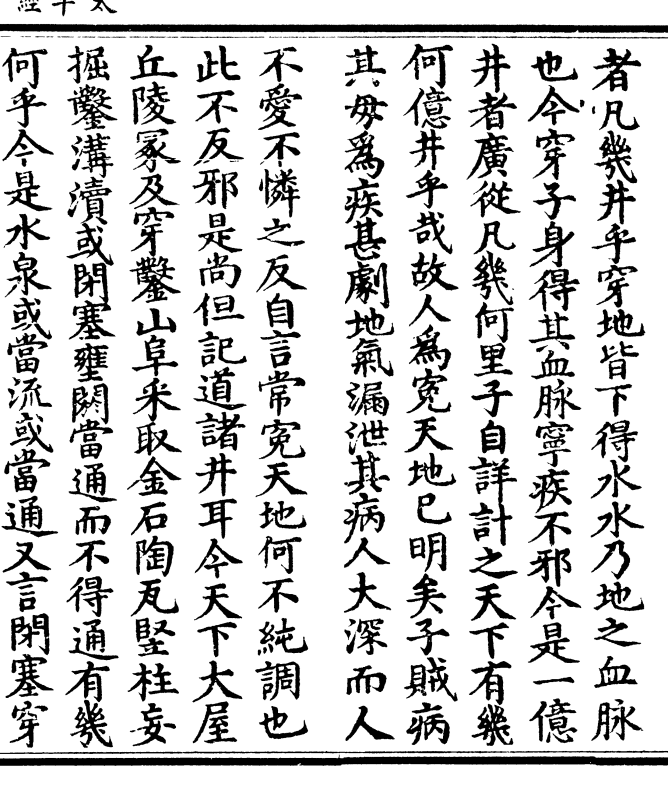 太平經
者凡幾井乎穿地皆下得水水乃地之血脉
也今穿子身得其血脉寧疾不邪今是一億
井者廣從凡幾何里子自詳計之天下有幾
何億井乎哉故人爲寃天地已明矣子賊病
其毋爲疾甚劇地氣漏泄其病人大深而人
不愛不憐之反自言常寃天地何不純調也
此不反邪是尚但記道諸井耳今天下大屋
丘陵冢及穿鑿山阜采取金石陶瓦竪柱妄
掘鑿溝瀆或閉塞壅閼當通而不得通有幾
何乎今是水泉或當流或當通又言閉塞穿